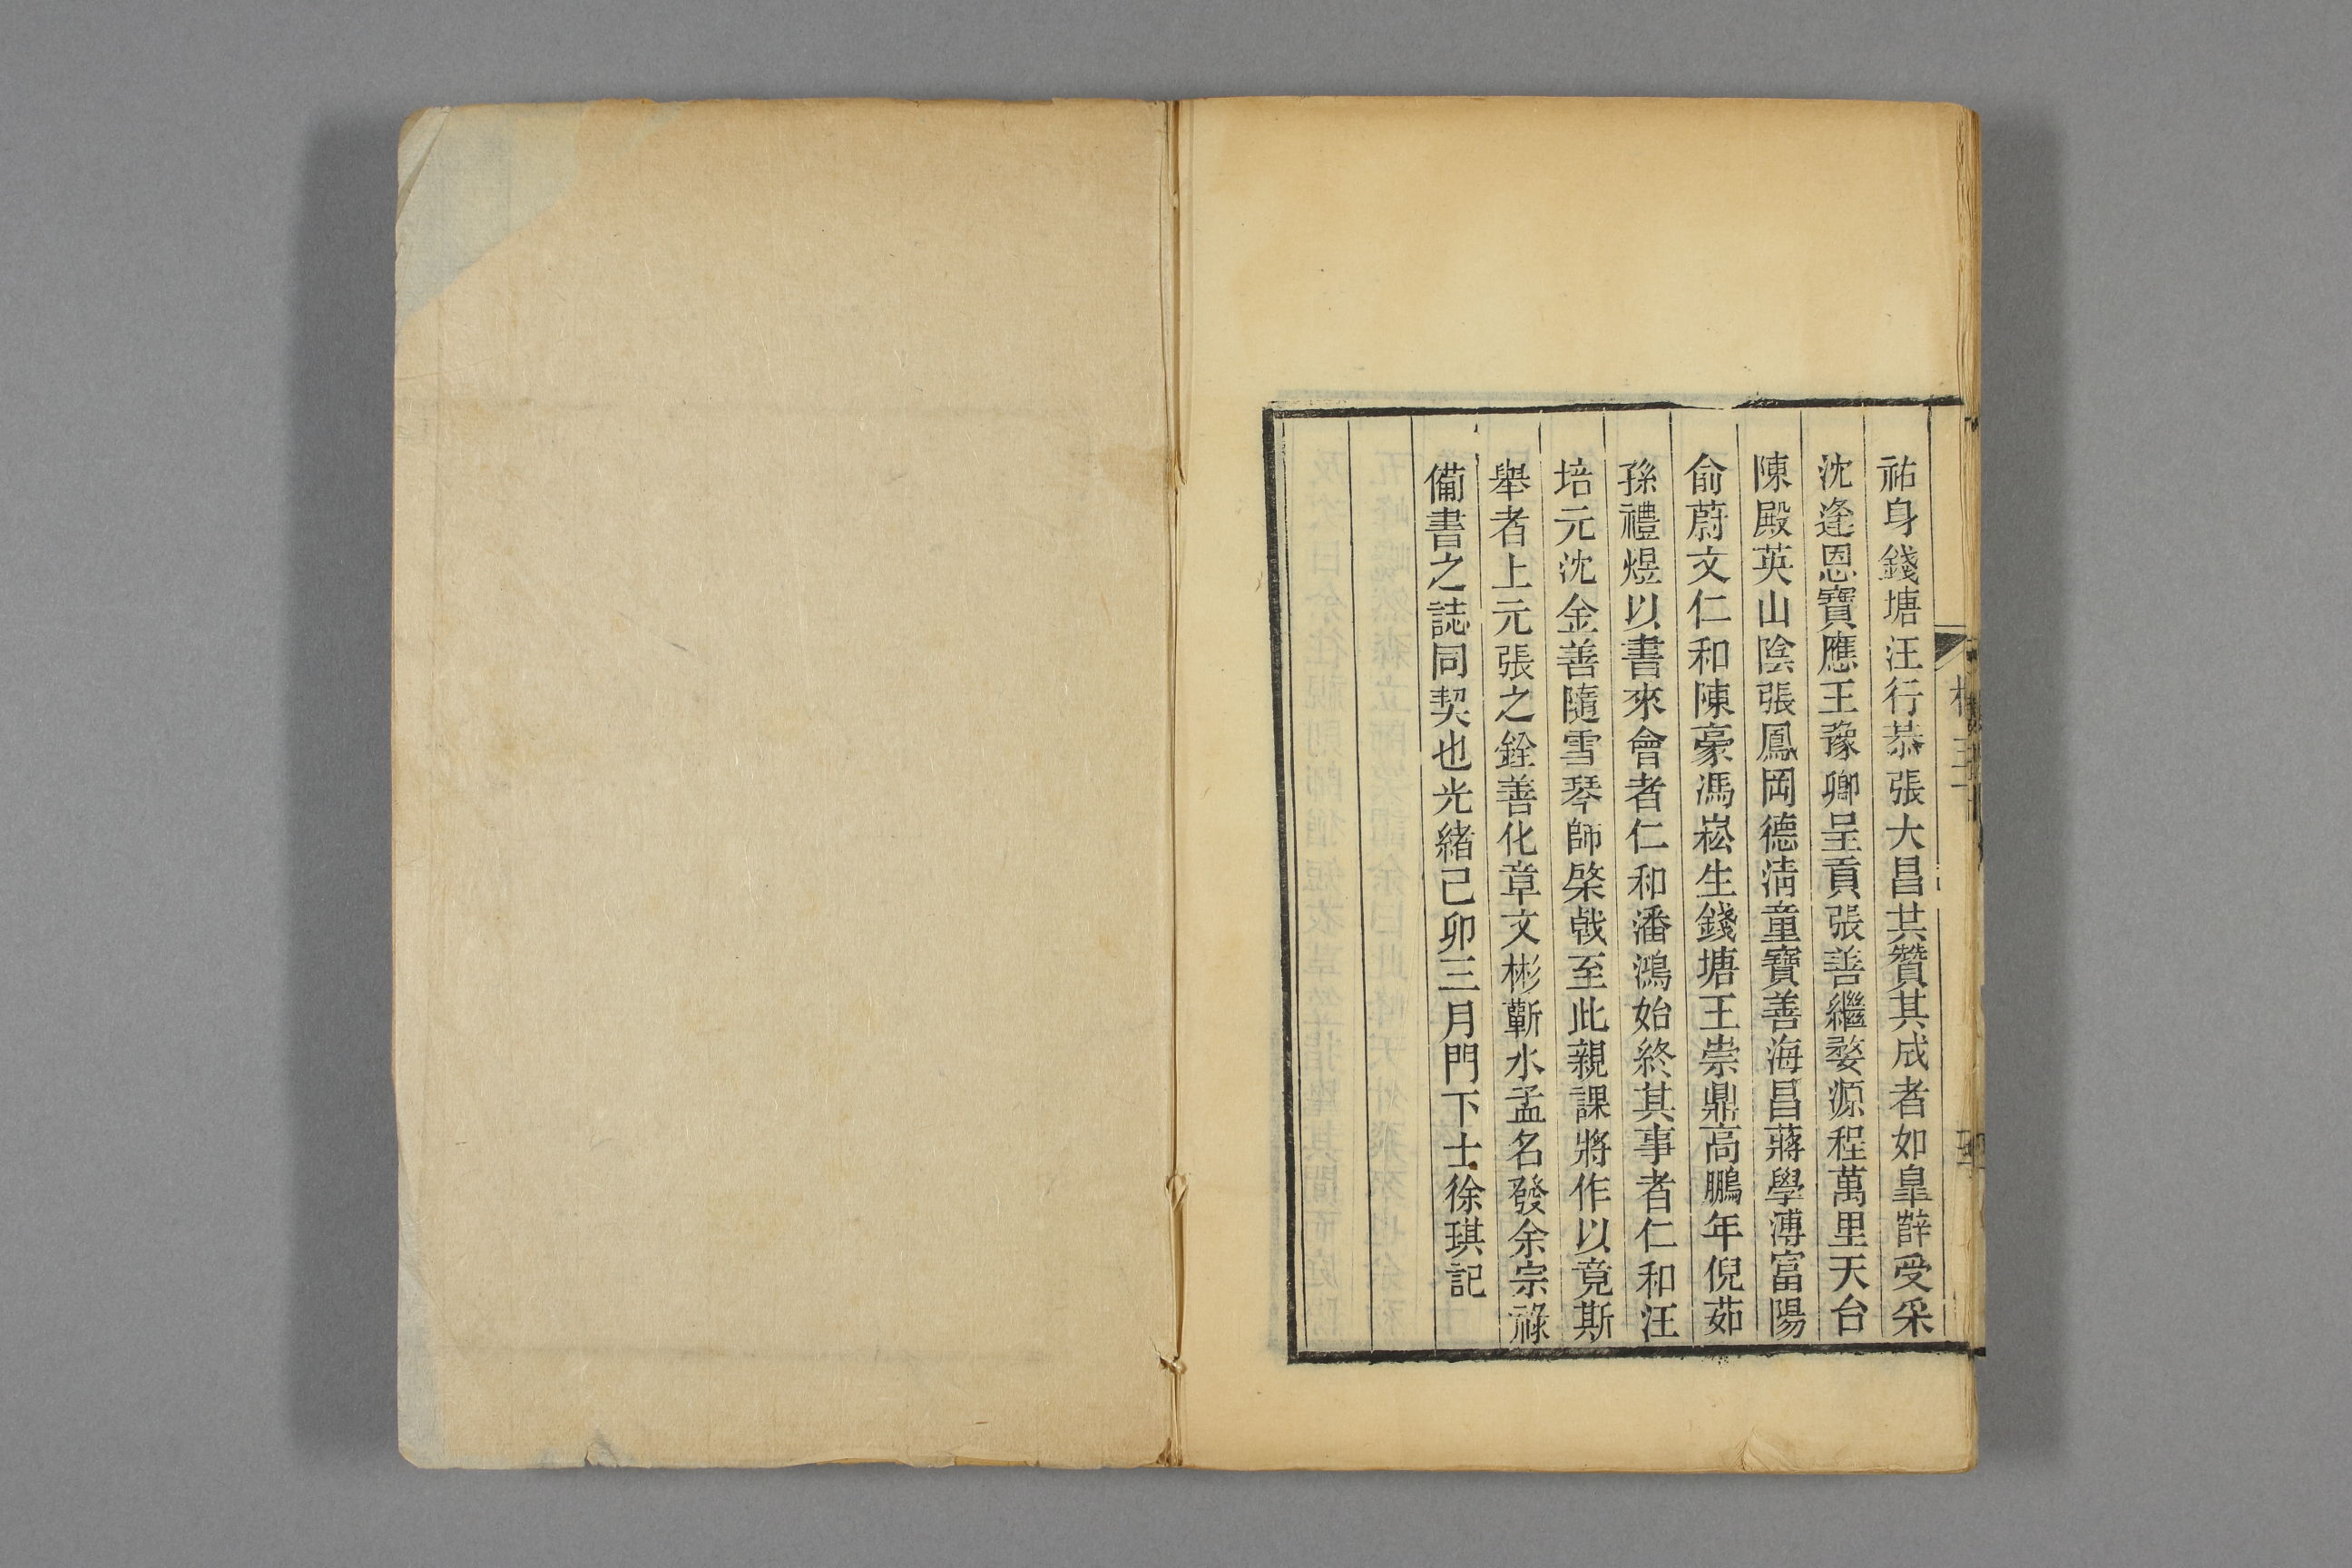 祐身錢塘汪行恭張大昌共贊其成者如皐薛受采
沈逢恩寶應王豫卿呈貢張善繼婺源程萬里天台
陳殿英山陰張鳳岡德淸童寶善海昌蔣學溥富陽
俞蔚文仁和陳豪馮崧生錢塘王崇鼎高鵬年倪茹
孫禮煜以書來會者仁和潘鴻始終其事者仁和汪
培元沈金善隨雪琴師棨戟至此親課將作以竟斯
舉者上元張之銓善化章文彬蘄水孟名發余宗祿
備書之誌同契也光緒己卯三月門下士徐琪記